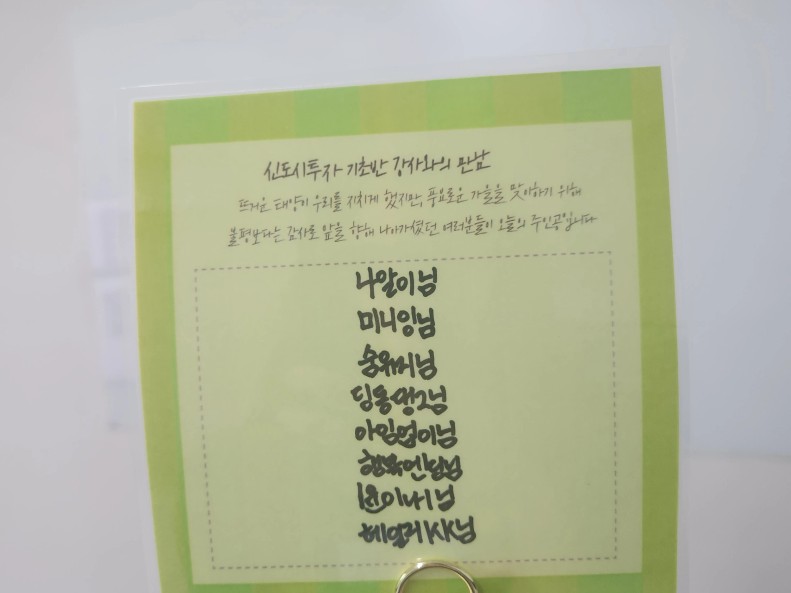 신도시투자 기초반 강사와의 만남
뜨거운 태양이 우리를 지치게 했지만, 풍요로운 가을을 맞이하기 위해
불평보다는 감사로 앞을 향해 나아가셨던 여러분들이 오늘의 주인공입니다
나알이님
미니잉님
숭위씨님
딩동댕2님
아임업이님
이나님
헤일리사님